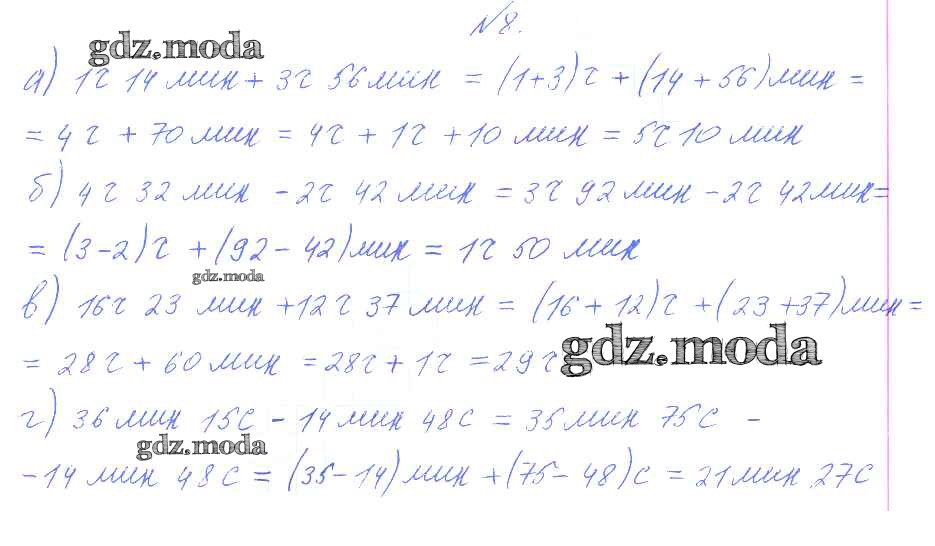 №8.
gdz.moda
а) 1ч 14 мин + 3ч 56 мин = (1+3)ч + (14 + 56)мин =
= 4ч + 70 мин = 4ч + 1ч + 10 мин = 5ч 10 мин
б) 4ч 32 мин - 2ч 42 мин = 3ч 92 мин - 2ч 42 мин =
= (3-2)ч + (92 - 42)мин = 1ч 50 мин
gdz.moda
в) 16ч 23 мин + 12ч 37 мин = (16 + 12)ч + (23 + 37)мин =
= 28ч + 60 мин = 28ч + 1ч = 29ч gdz.moda
г) 36 мин 15с - 14 мин 48с = 35 мин 75с -
gdz.moda
- 14 мин 48с = (35-14)мин + (75 - 48)с = 21 мин 27с